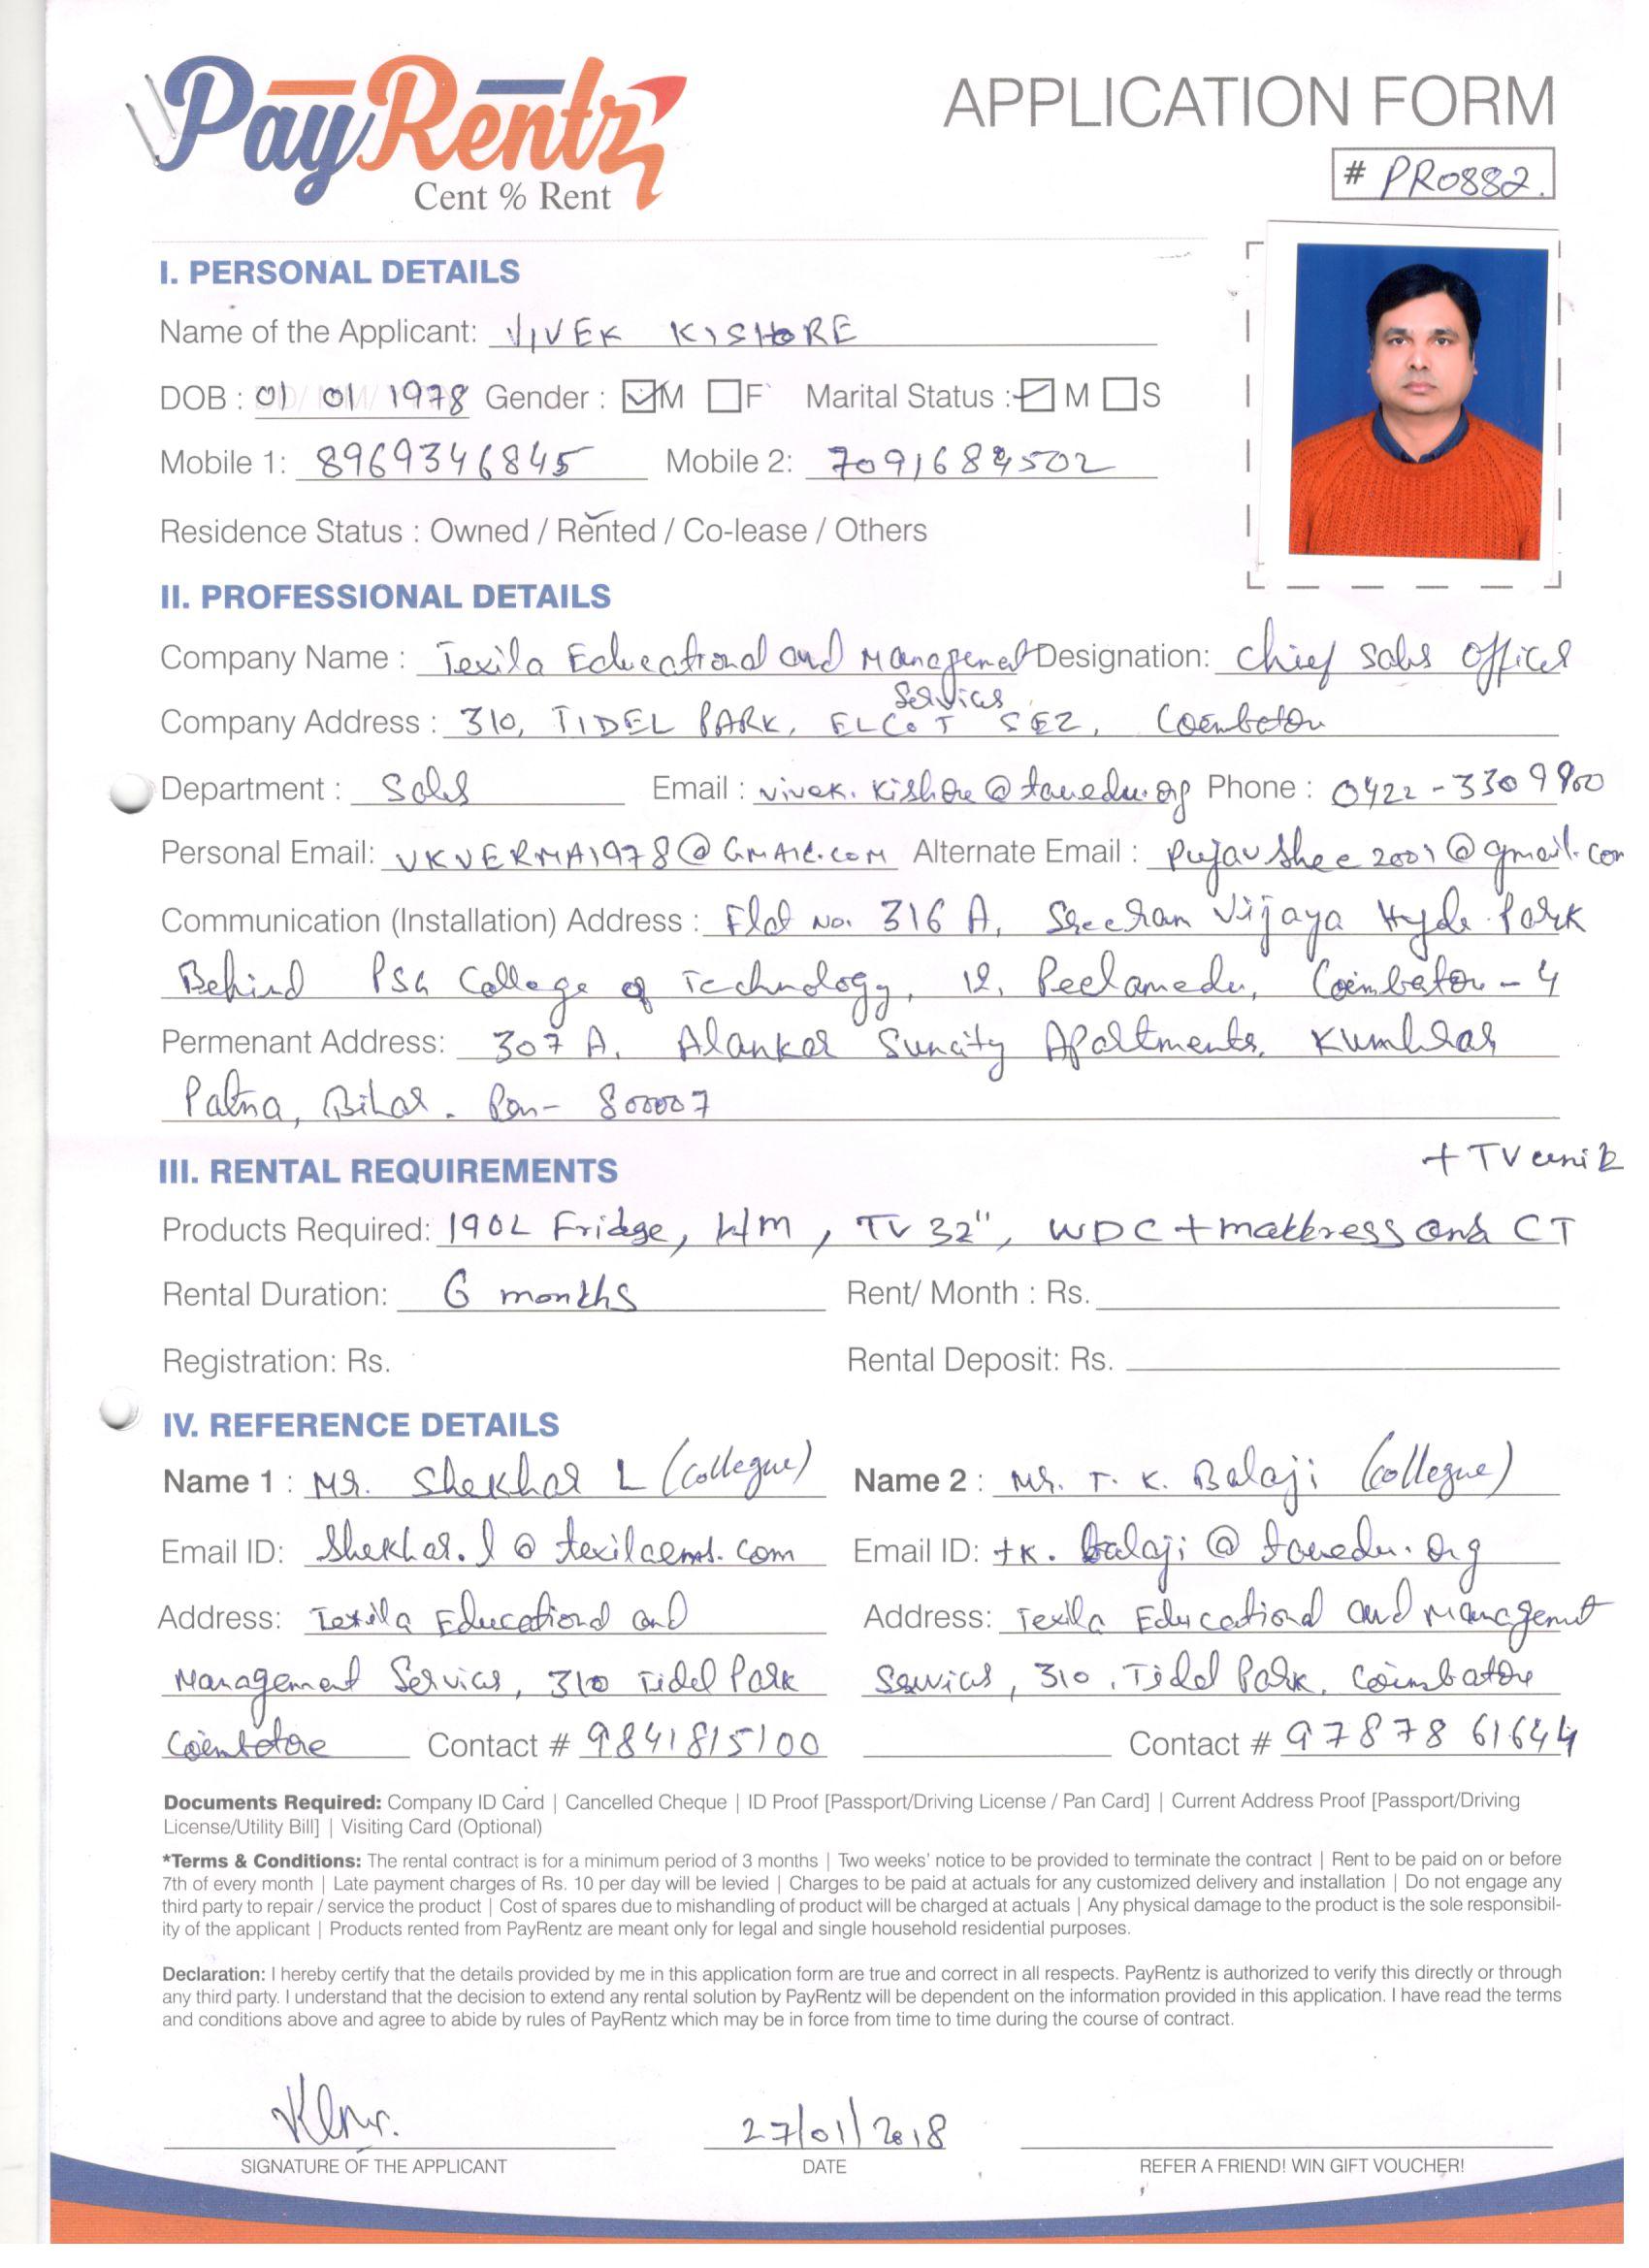 PayRentz
Cent % Rent
APPLICATION FORM
# PR0882.
I. PERSONAL DETAILS
Name of the Applicant: VIVEK KISHORE
DOB : 01 01 1978 Gender : M F Marital Status : M S
Mobile 1: 8969346845 Mobile 2: 7091684502
Residence Status : Owned / Rented / Co-lease / Others
II. PROFESSIONAL DETAILS
Company Name : Texila Educational and Management Designation: Chief Sales Officer
Services
Company Address : 310, TIDEL PARK, ELCOT SEZ, Coimbatore
Department : Sales Email : vivek.kishore@tauedu.org Phone : 0422-3309900
Personal Email: VKVERMA1978@GMAIL.COM Alternate Email : pujavshee2001@gmail.com
Communication (Installation) Address : Flat No. 316 A, Sreeram Vijaya Hyde Park
Behind PSG College of Technology, 12, Peelamedu, Coimbatore - 4
Permenant Address: 307 A, Alankar Suncity Apartments, Kumhrar
Patna, Bihar. Pin- 800007
III. RENTAL REQUIREMENTS
+ TV unit
Products Required: 190L Fridge, W/M, TV 32", WDC + mattress and CT
Rental Duration: 6 months Rent/ Month : Rs.
Registration: Rs. Rental Deposit: Rs.
IV. REFERENCE DETAILS
Name 1 : Mr. Shekhar L (Collegue) Name 2 : Mr. T. K. Balaji (Collegue)
Email ID: Shekhar.l@texilaems.com Email ID: tk.balaji@tauedu.org
Address: Texila Educational and Address: Texila Educational and Managemnt
Management Services, 310 Tidel Park Services, 310, Tidel Park, Coimbatore
Coimbatore Contact # 9841815100 Contact # 97878 61644
Documents Required: Company ID Card | Cancelled Cheque | ID Proof [Passport/Driving License / Pan Card] | Current Address Proof [Passport/Driving
License/Utility Bill] | Visiting Card (Optional)
*Terms & Conditions: The rental contract is for a minimum period of 3 months | Two weeks' notice to be provided to terminate the contract | Rent to be paid on or before
7th of every month | Late payment charges of Rs. 10 per day will be levied | Charges to be paid at actuals for any customized delivery and installation | Do not engage any
third party to repair / service the product | Cost of spares due to mishandling of product will be charged at actuals | Any physical damage to the product is the sole responsibil-
ity of the applicant | Products rented from PayRentz are meant only for legal and single household residential purposes.
Declaration: I hereby certify that the details provided by me in this application form are true and correct in all respects. PayRentz is authorized to verify this directly or through
any third party. I understand that the decision to extend any rental solution by PayRentz will be dependent on the information provided in this application. I have read the terms
and conditions above and agree to abide by rules of PayRentz which may be in force from time to time during the course of contract.
27/01/2018
SIGNATURE OF THE APPLICANT DATE REFER A FRIEND! WIN GIFT VOUCHER!